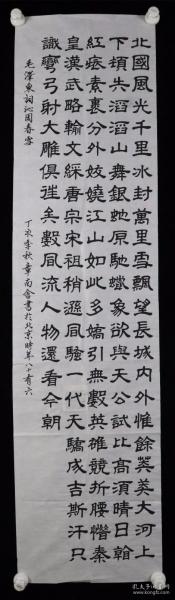 北國風光千里冰封萬里雪飄望長城內外惟餘莽莽大河上
下頓失滔滔山舞銀蛇原馳蠟象欲與天公試比高須晴日看
紅裝素裹分外妖嬈江山如此多嬌引無數英雄競折腰惜秦
皇漢武略輸文綵唐宗宋祖稍遜風騷一代天驕成吉斯汗只
識彎弓射大雕俱往矣數風流人物還看今朝
毛澤東詞沁園春雪 丁亥季秋章書於北京時年八十有六